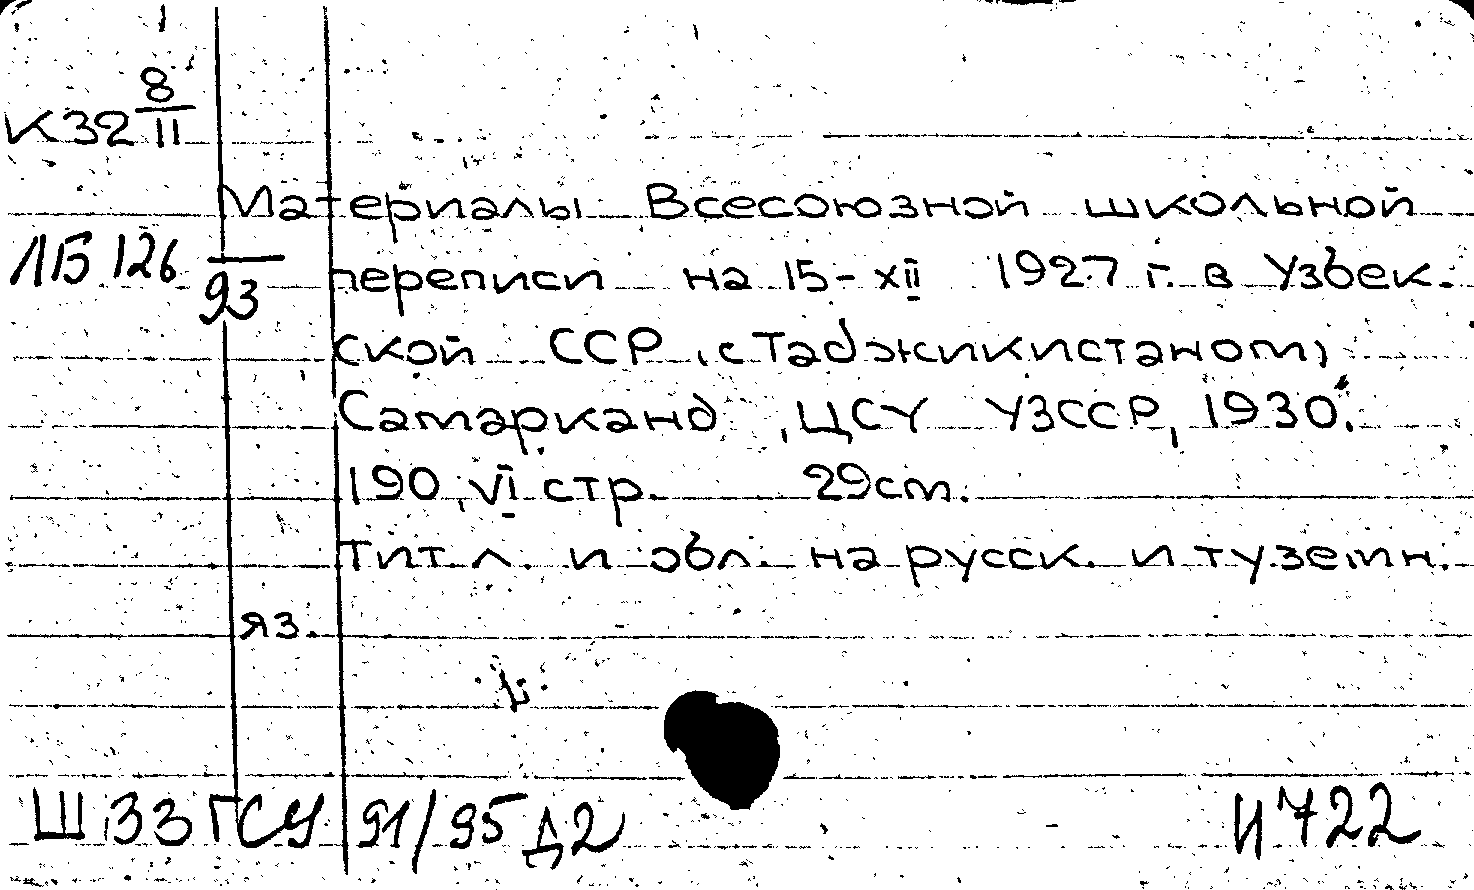 К32 8/II
Материалы Всесоюзной школьной
ЛБ 126/93 переписи на 15-XII 1927 г. в Узбек.
ской ССР, с Таджикистаном,
Самарканд, ЦСУ УЗССР, 1930.
190, VI стр. 29см.
Тит. л. и обл. на русск. и туземн.
яз.
Ш 33 ГСУ 91/95 Д2 И722